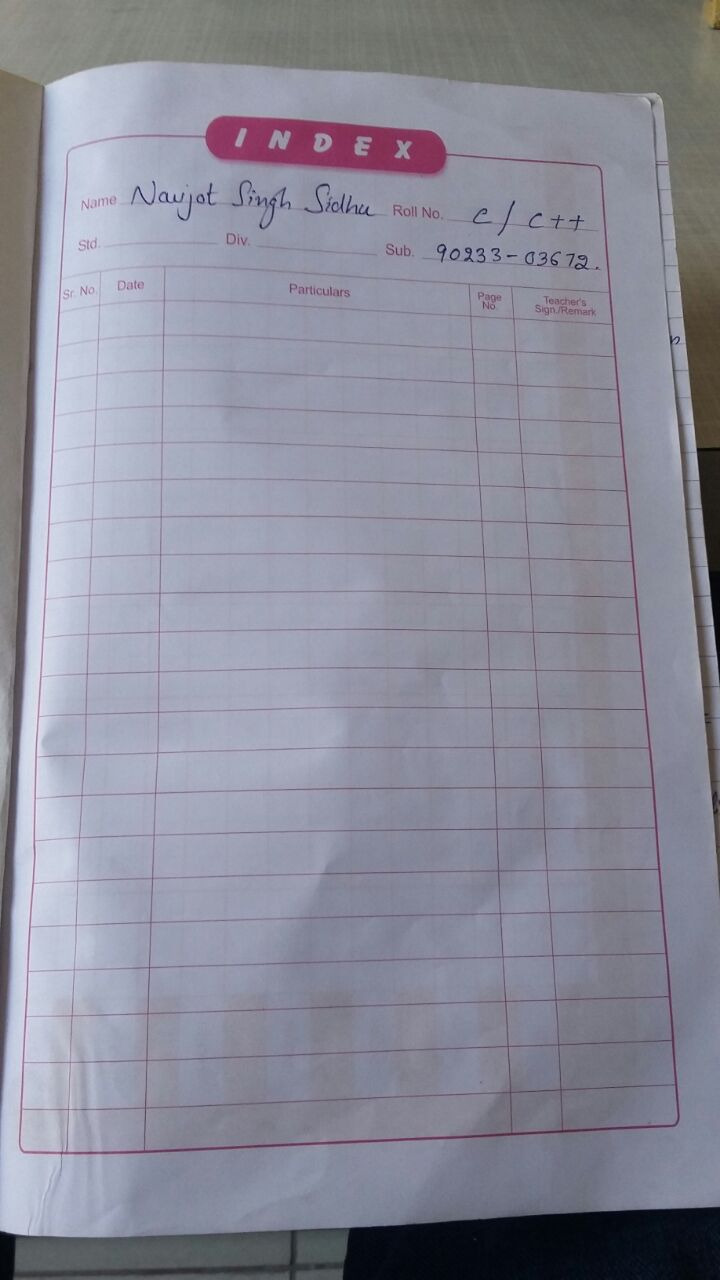 INDEX
Name Navjot Singh Sidhu Roll No. C / C++
Std. Div. Sub. 90233-03672.
Sr. No. Date Particulars Page No. Teacher's Sign./Remark